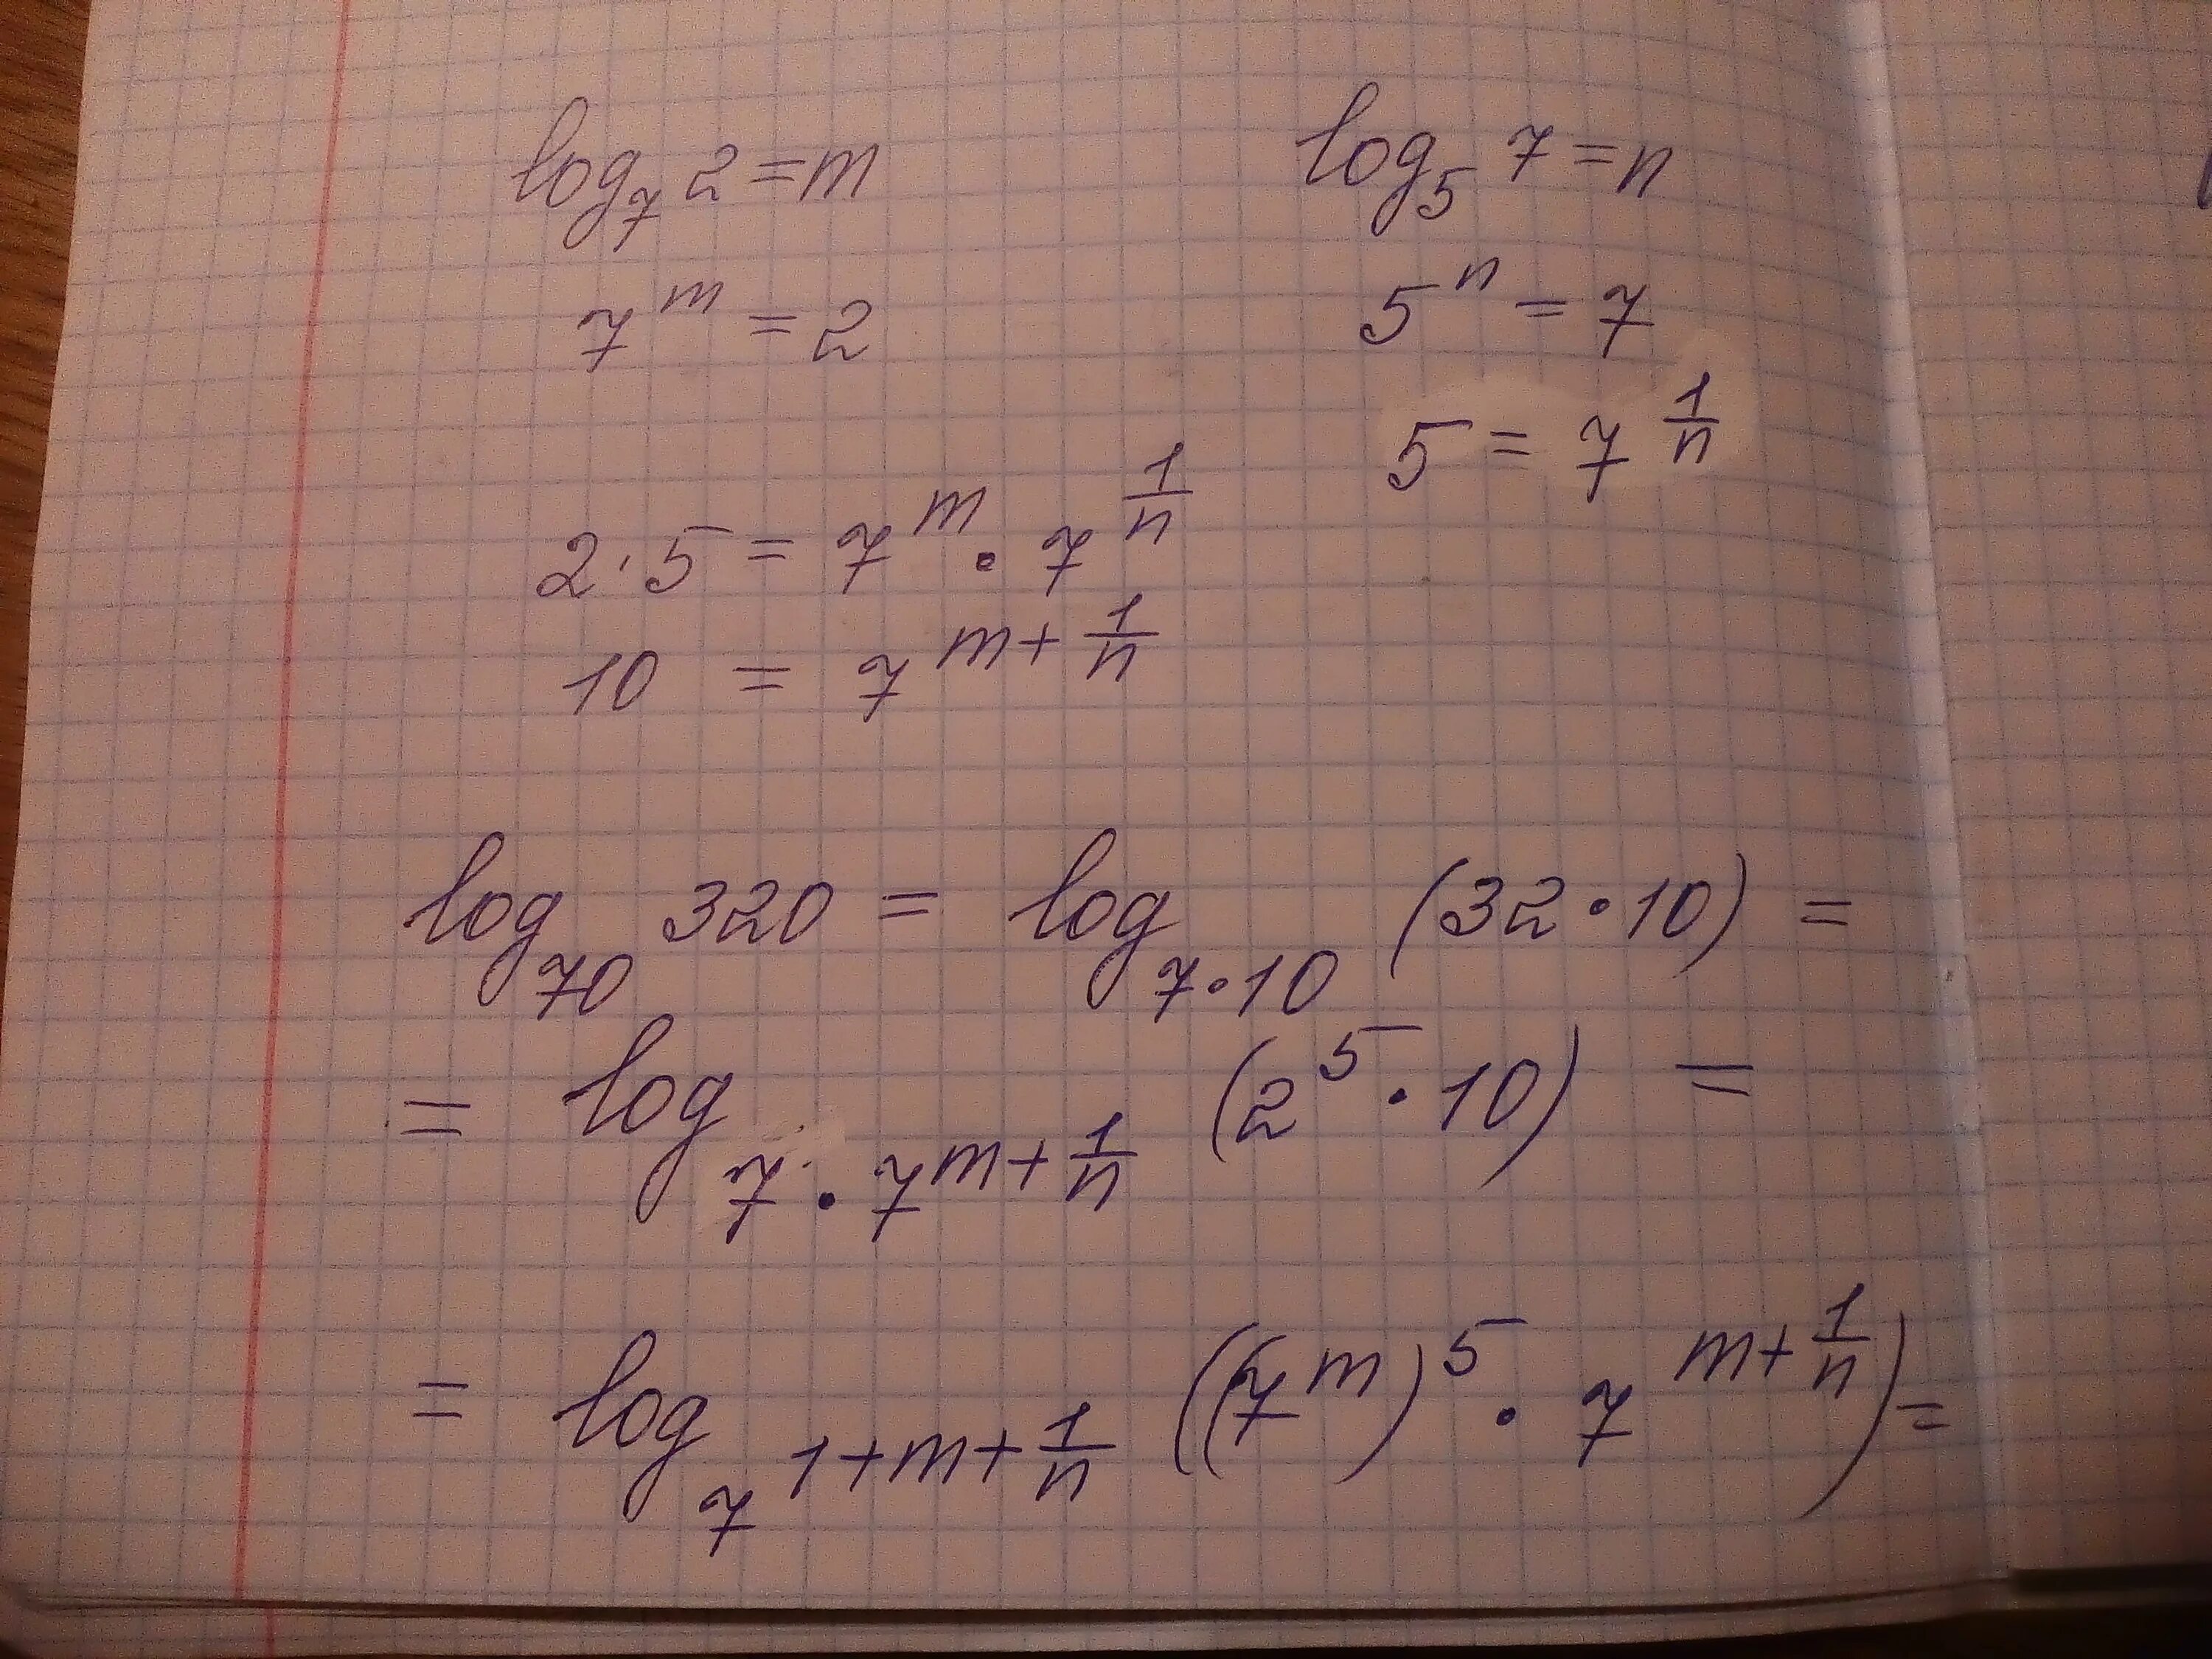 log₇ 2 = m    log₅ 7 = n
7^m = 2    5^n = 7
5 = 7^(1/n)
2 · 5 = 7^m · 7^(1/n)
10 = 7^(m + 1/n)
log₇₀ 320 = log_(7·10) (32 · 10) =
= log_(7 · 7^(m + 1/n)) (2^5 · 10) =
= log_(7^(1 + m + 1/n)) ((7^m)^5 · 7^(m + 1/n)) =